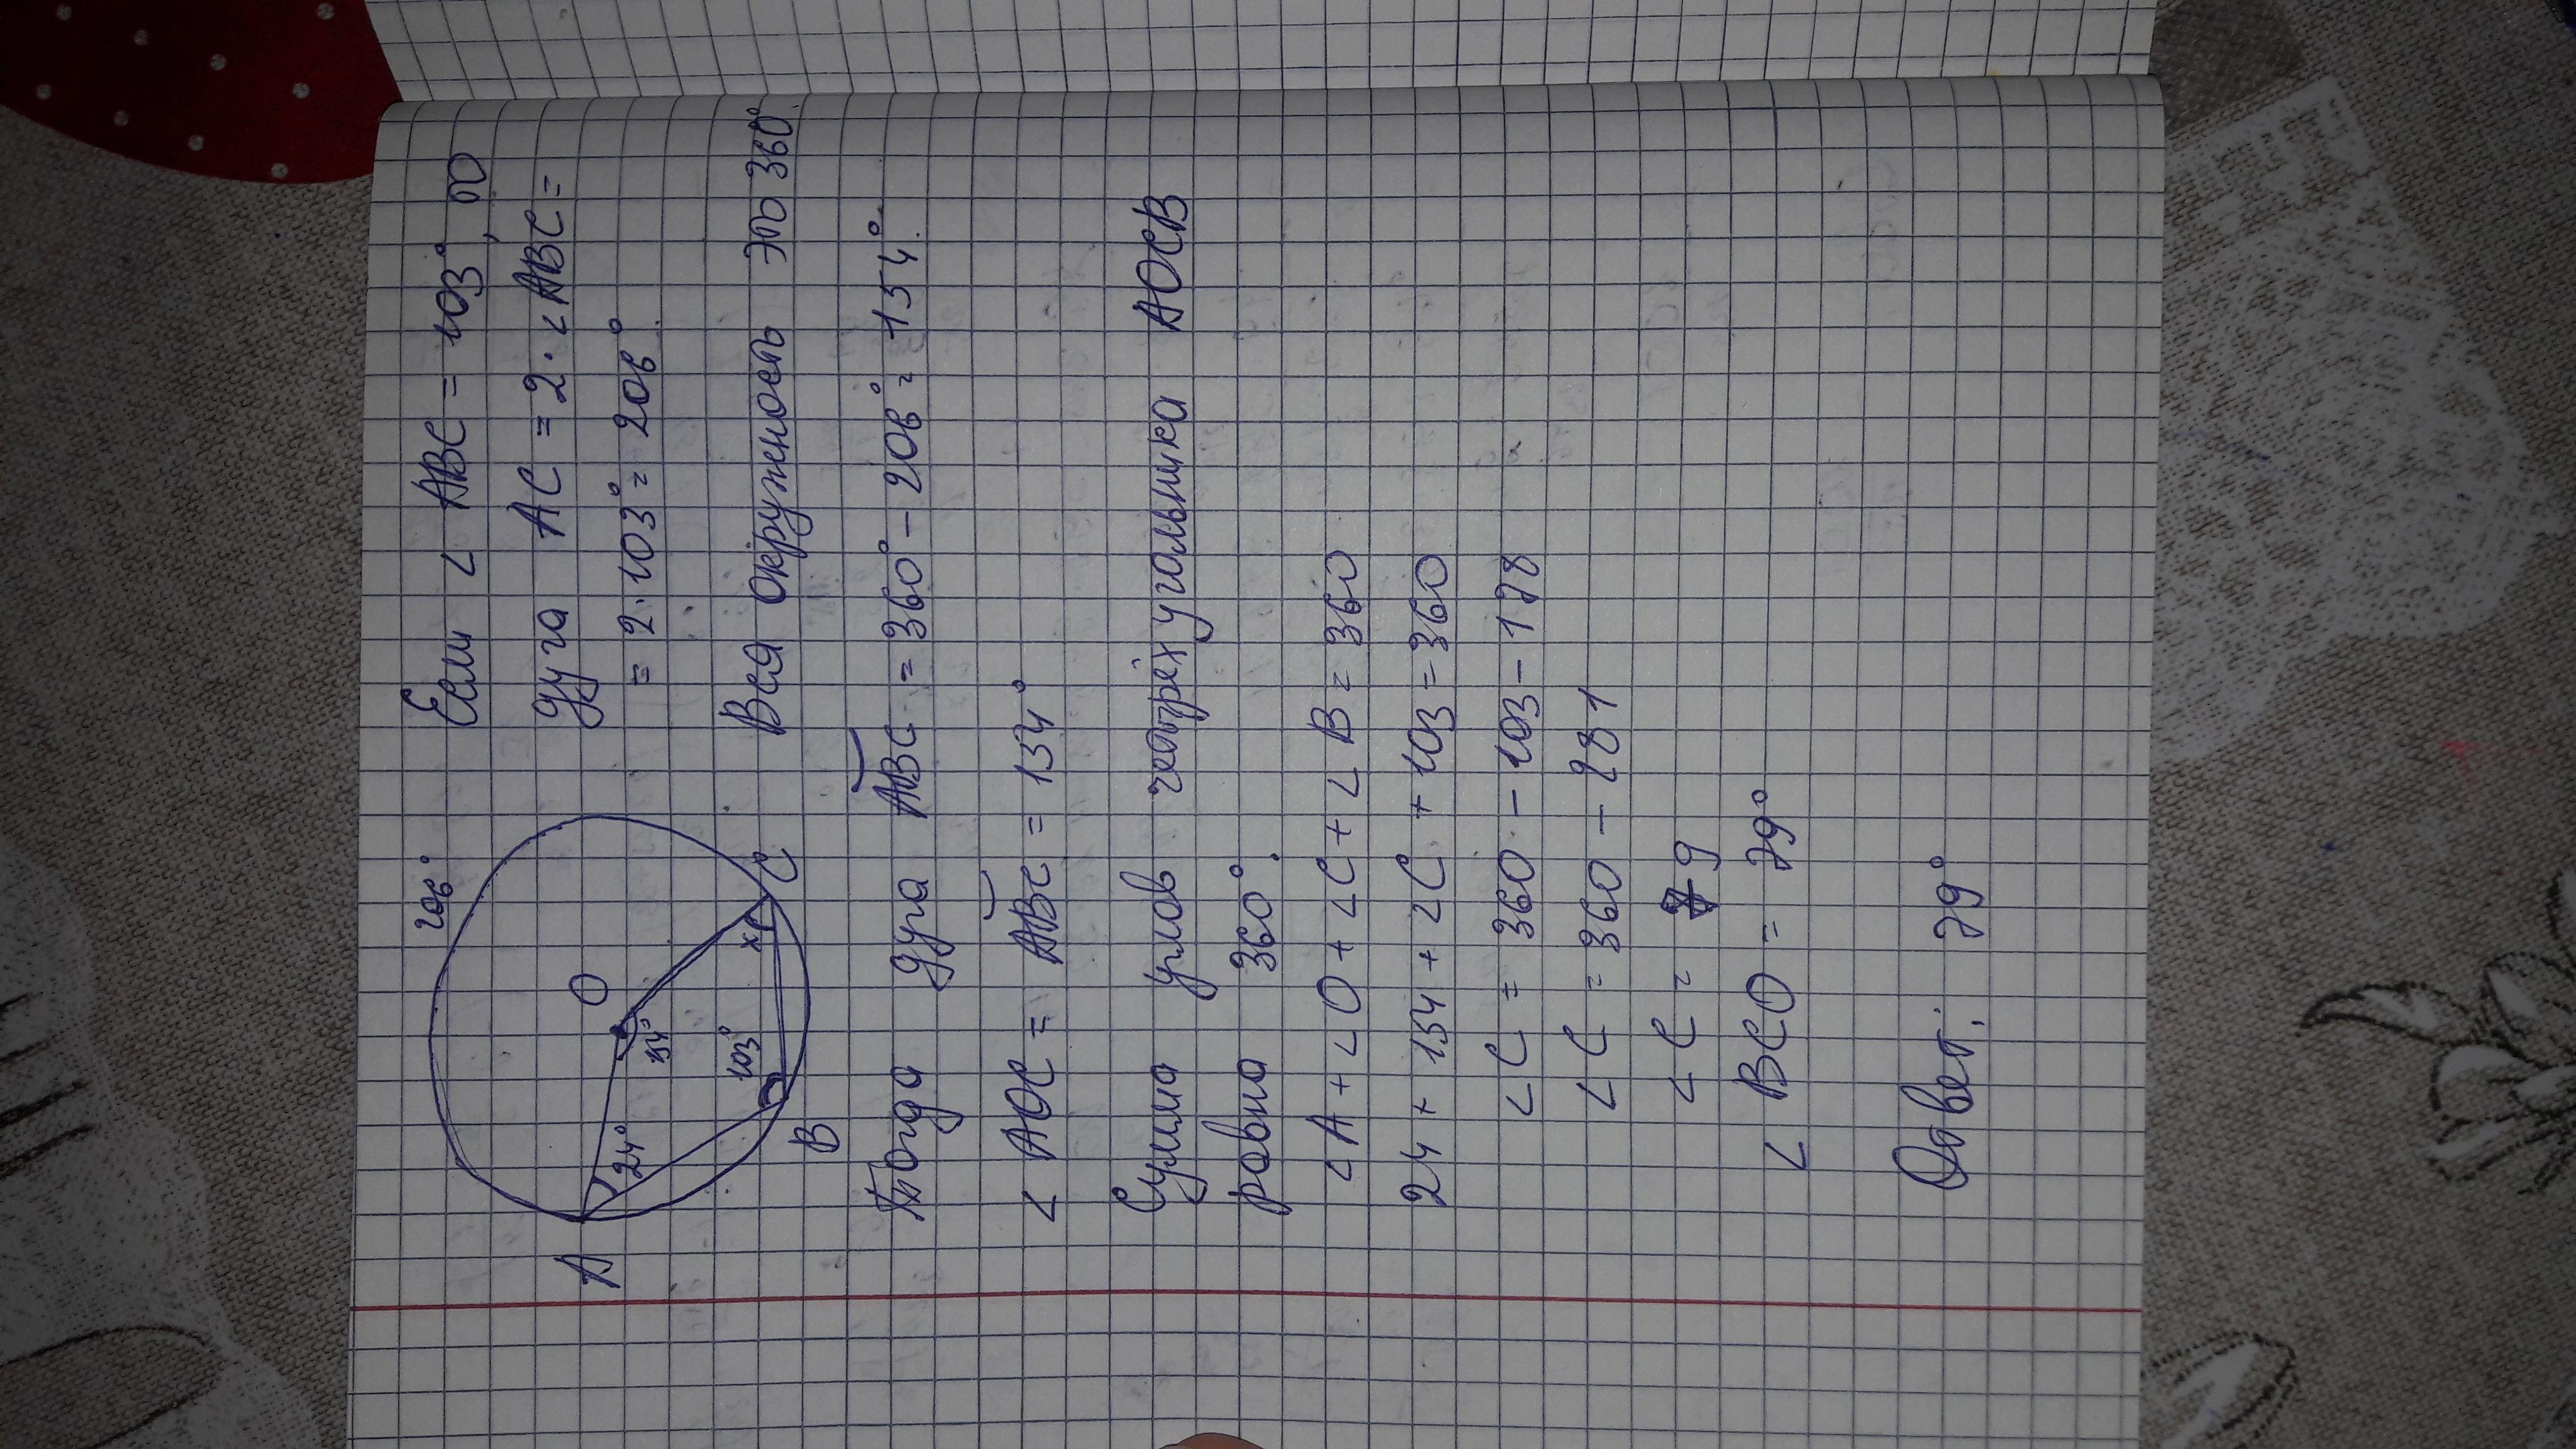 206°
O
154°
24°
103°
x
A
B
C
Если ∠ ABC = 103°, то
дуга AC = 2 · ∠ ABC =
= 2 · 103° = 206°.
Вся окружность это 360°.
Тогда дуга ABC = 360° - 206° = 154°.
∠ AOC = ABC = 154°
Сумма углов четырёхугольника AOCB
равна 360°.
∠A + ∠O + ∠C + ∠B = 360
24 + 154 + ∠C + 103 = 360
∠C = 360 - 103 - 178
∠C = 360 - 281
∠C = 79
∠ BCO = 79°
Ответ: 79°